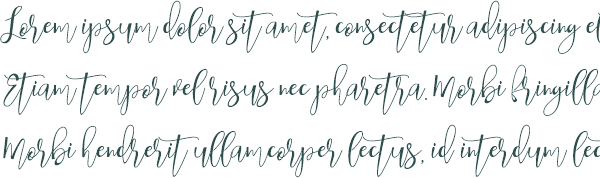 Lorem ipsum dolor sit amet, consectetur adipiscing el
Etiam tempor vel risus nec pharetra. Morbi fringilla
Morbi hendrerit ullamcorper lectus, id interdum lec